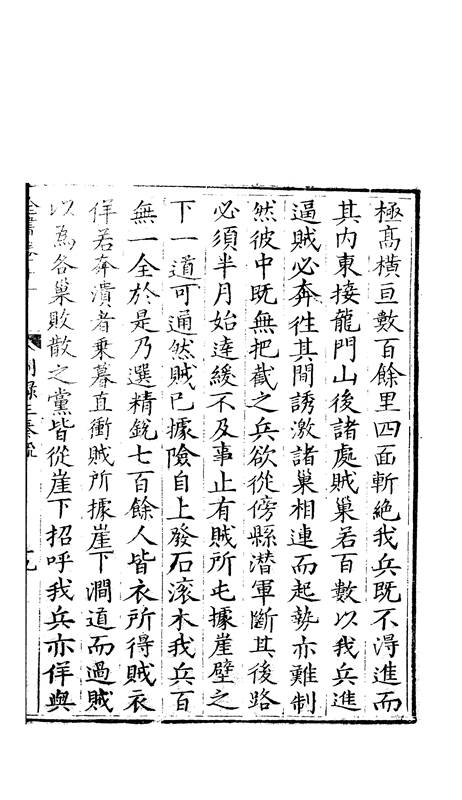 極高橫亘數百餘里四面斬絶我兵既不淂進而
其内東接龍門山後諸處賊巢若百數以我兵進
逼賊必奔徃其間誘激諸巢相連而起勢亦難制
然彼中既無把截之兵欲從傍縣潜軍斷其後路
必須半月始達緩不及事止有賊所屯據崖壁之
下一道可通然賊已據險自上發石滚木我兵百
無一全於是乃選精銳七百餘人皆衣所得賊衣
佯若奔潰者乗暮直衝賊所據崖下澗道而過賊
以爲各巢敗散之黨皆從崖下招呼我兵亦佯與